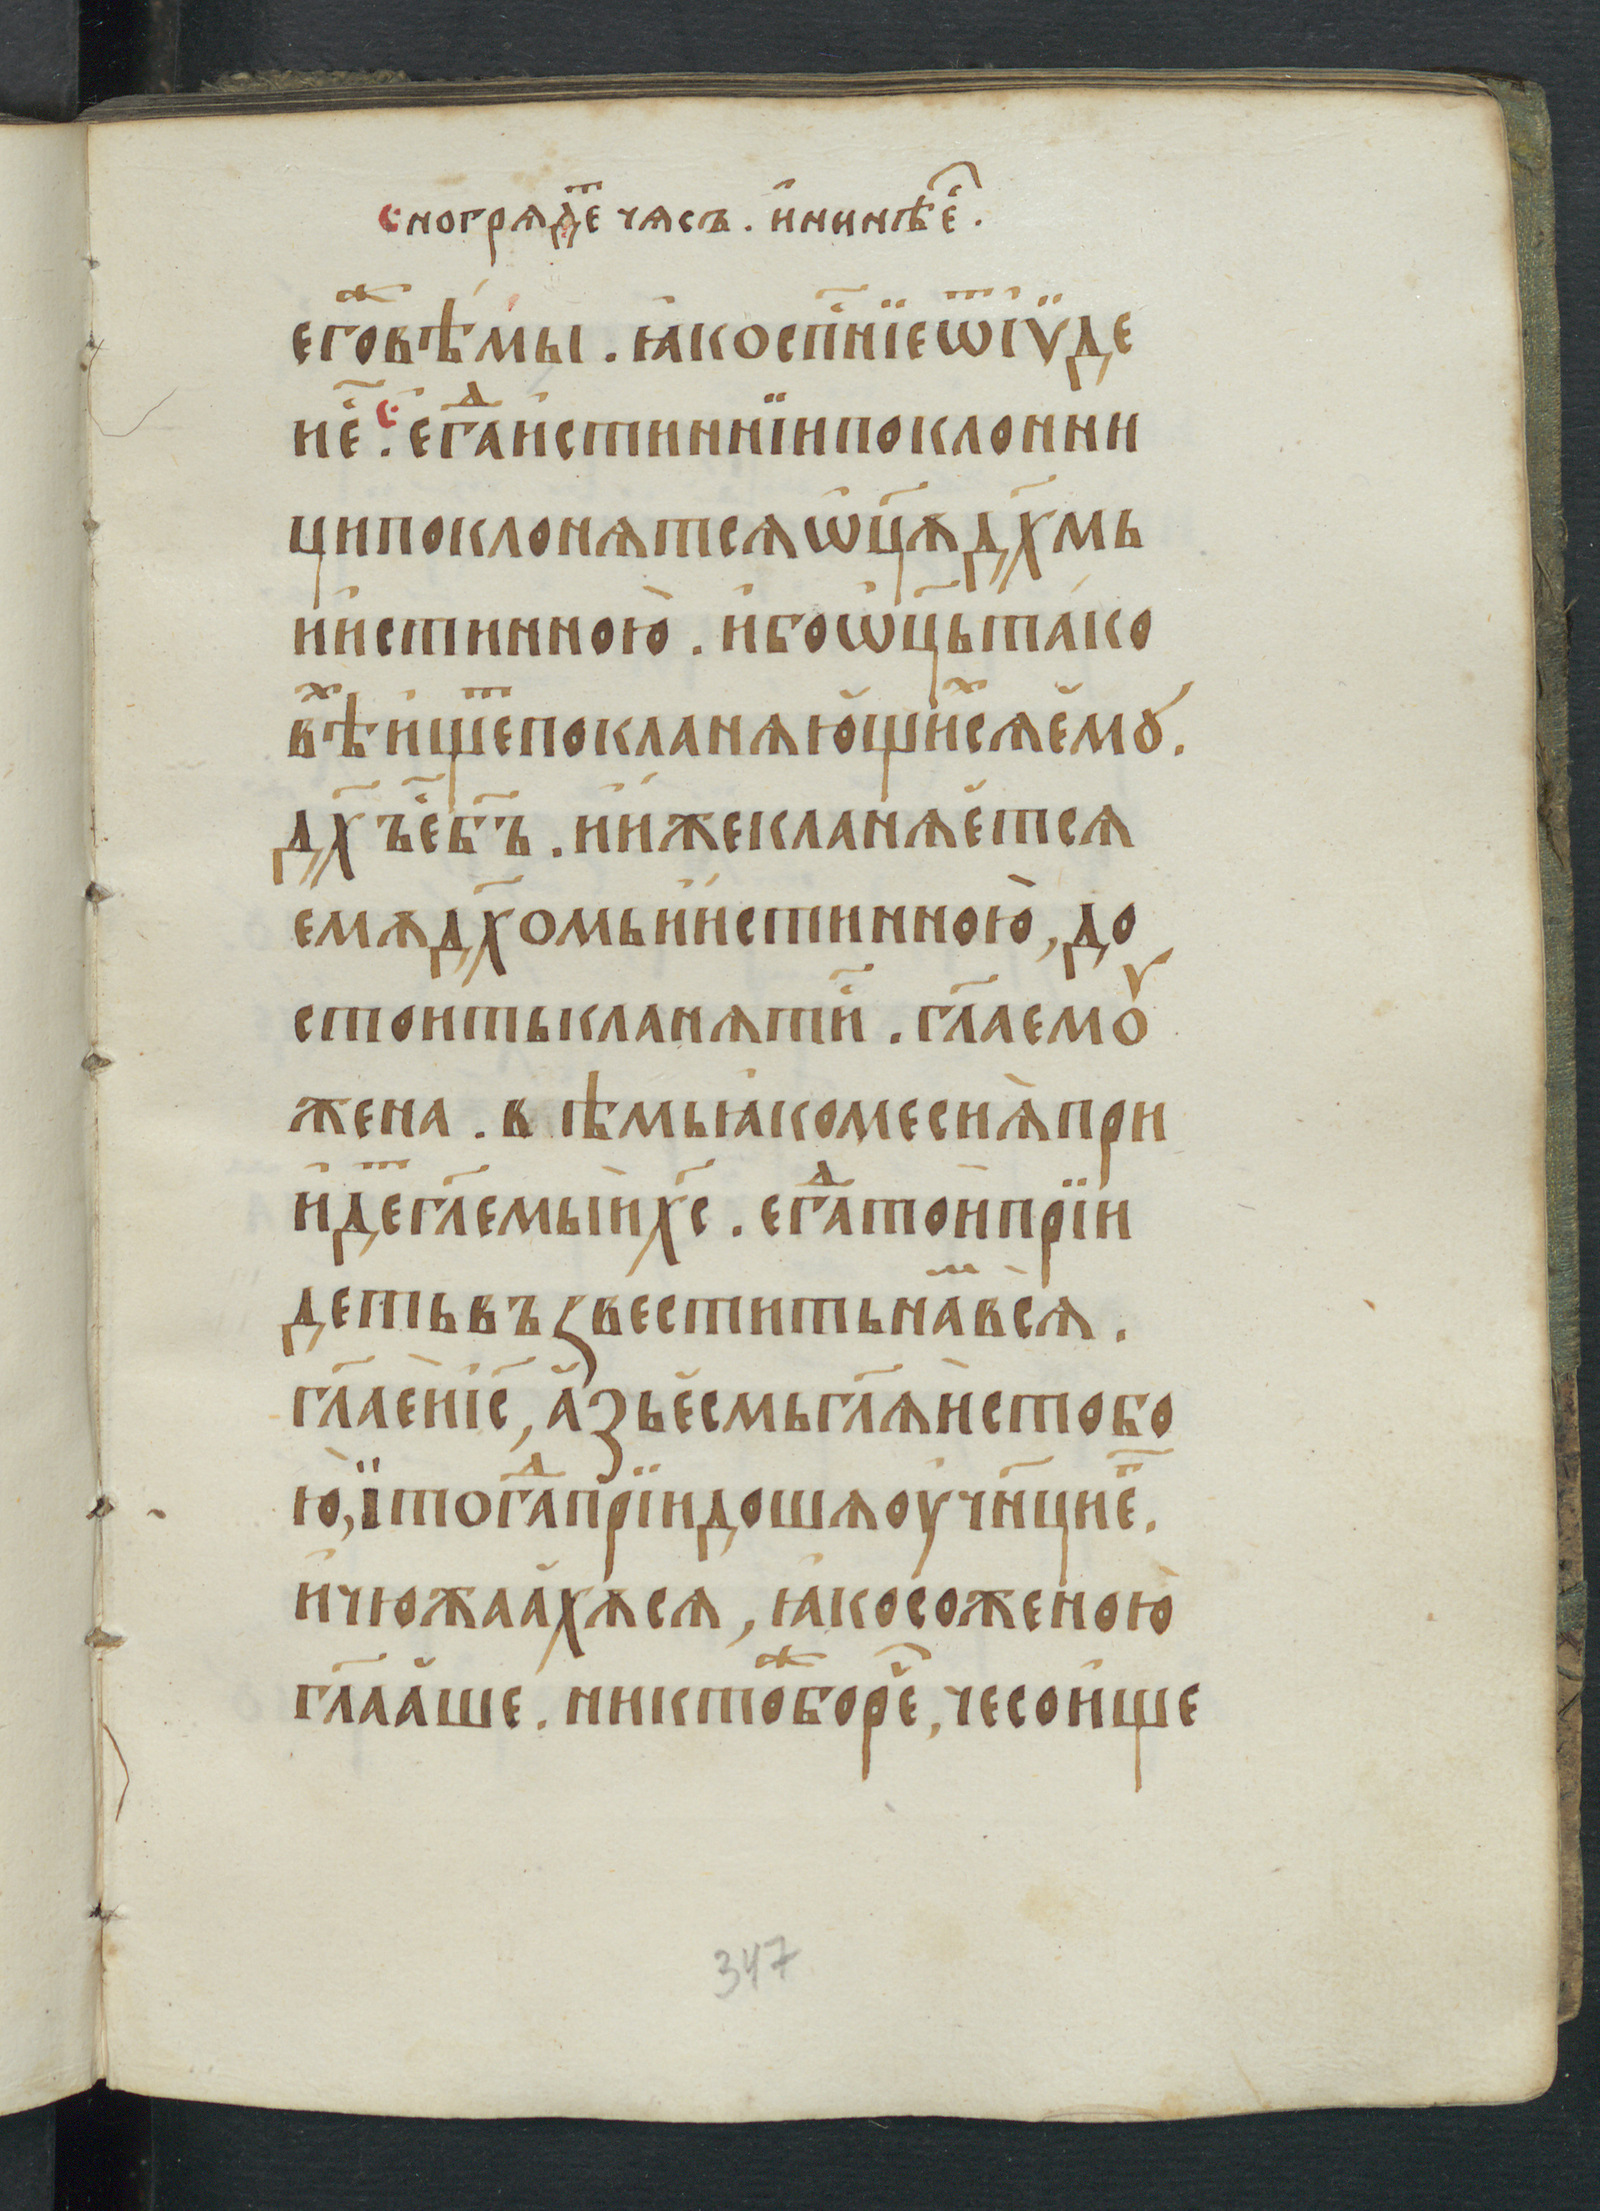 ногрѧдⷮе чѧсъ . и҆ нинѣ е҆҃ .
егоⷤ вѣмы . ꙗ҆ко сп҃нїе ѿ і҆ꙋ̈де
и҆ е҃ . егⷣа и҆стиннїи поклонни
ци поклонѧтсѧ ѡ҆ц҃ѧ дх҃мь
и и҆стинною̀ . и҆бо ѡ҆ц҃ь та́ко
вѣⷯ и҆щеⷮ покланѧю҆щиⷯсѧ е҆мꙋ .
дх҃ъ е҆ б҃ъ . и и҆же кланѧе҆тсѧ
емѧ дх҃омь и и҆стинною̀, до
стоить кланѧти҆҃ . гл҃а емоу
жена . вѣмь ꙗ҆ко месиѧ̀ при
и҆деⷮ гл҃емыи̇ х҃с . егⷣа тои прїи
деть възвестить наⷨ всѧ .
гл҃а е҆и і҃с, а҆зъ е҆смь гл҃ѧи̇ с тобо
ю̀, ї тогⷣа прїидошѧ оучн҃ци е҃ .
и҆ чюжаа҆хѧсѧ, ꙗ҆ко со женою̀
гл҃аа҆ше . никтоⷤ бо рⷱе҆, чесо и҆ще
347